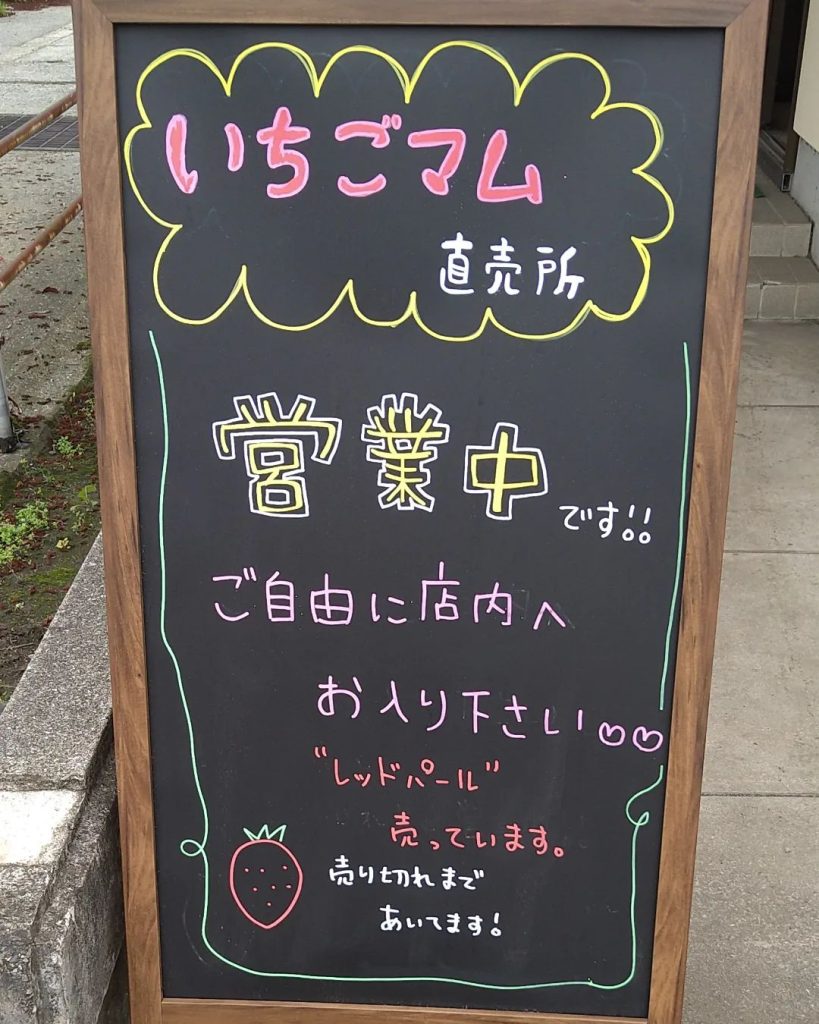 いちごマム
直売所
営業中です!!
ご自由に店内へ
お入り下さい♡♡
"レッドパール"
売っています。
売り切れまで
あいてます!